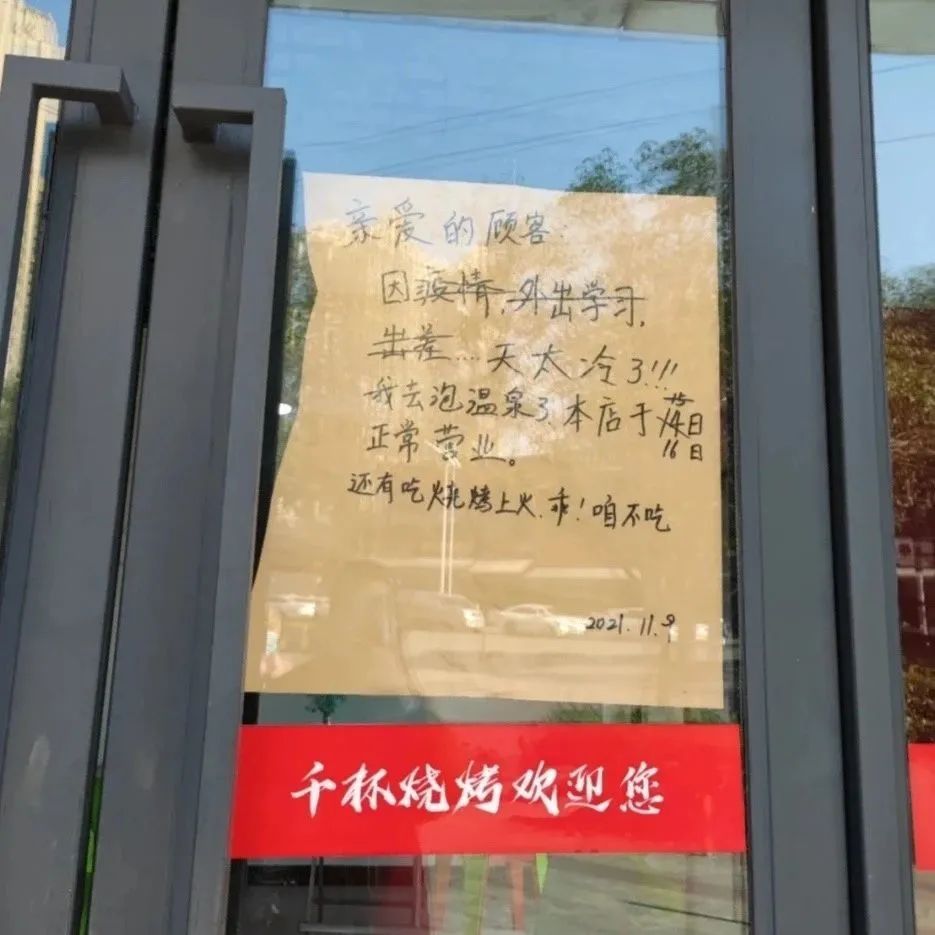 亲爱的顾客:
因疫情,外出学习,
出差....天太冷了!!!
我去泡温泉了.本店于14日
15
16日
正常营业。
还有吃烧烤上火.乖!咱不吃
2021.11.9
千杯烧烤欢迎您